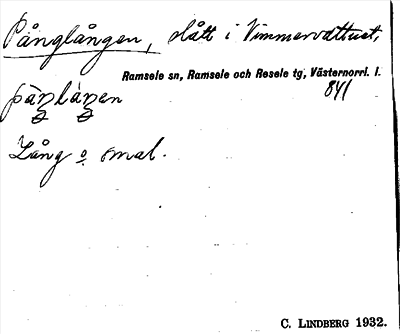 Pånglången, slått i Vimmervattnet,
Ramsele sn, Ramsele och Resele tg, Västernorrl. l.
841
påŋlåŋen
Lång o smal.
C. LINDBERG 1932.